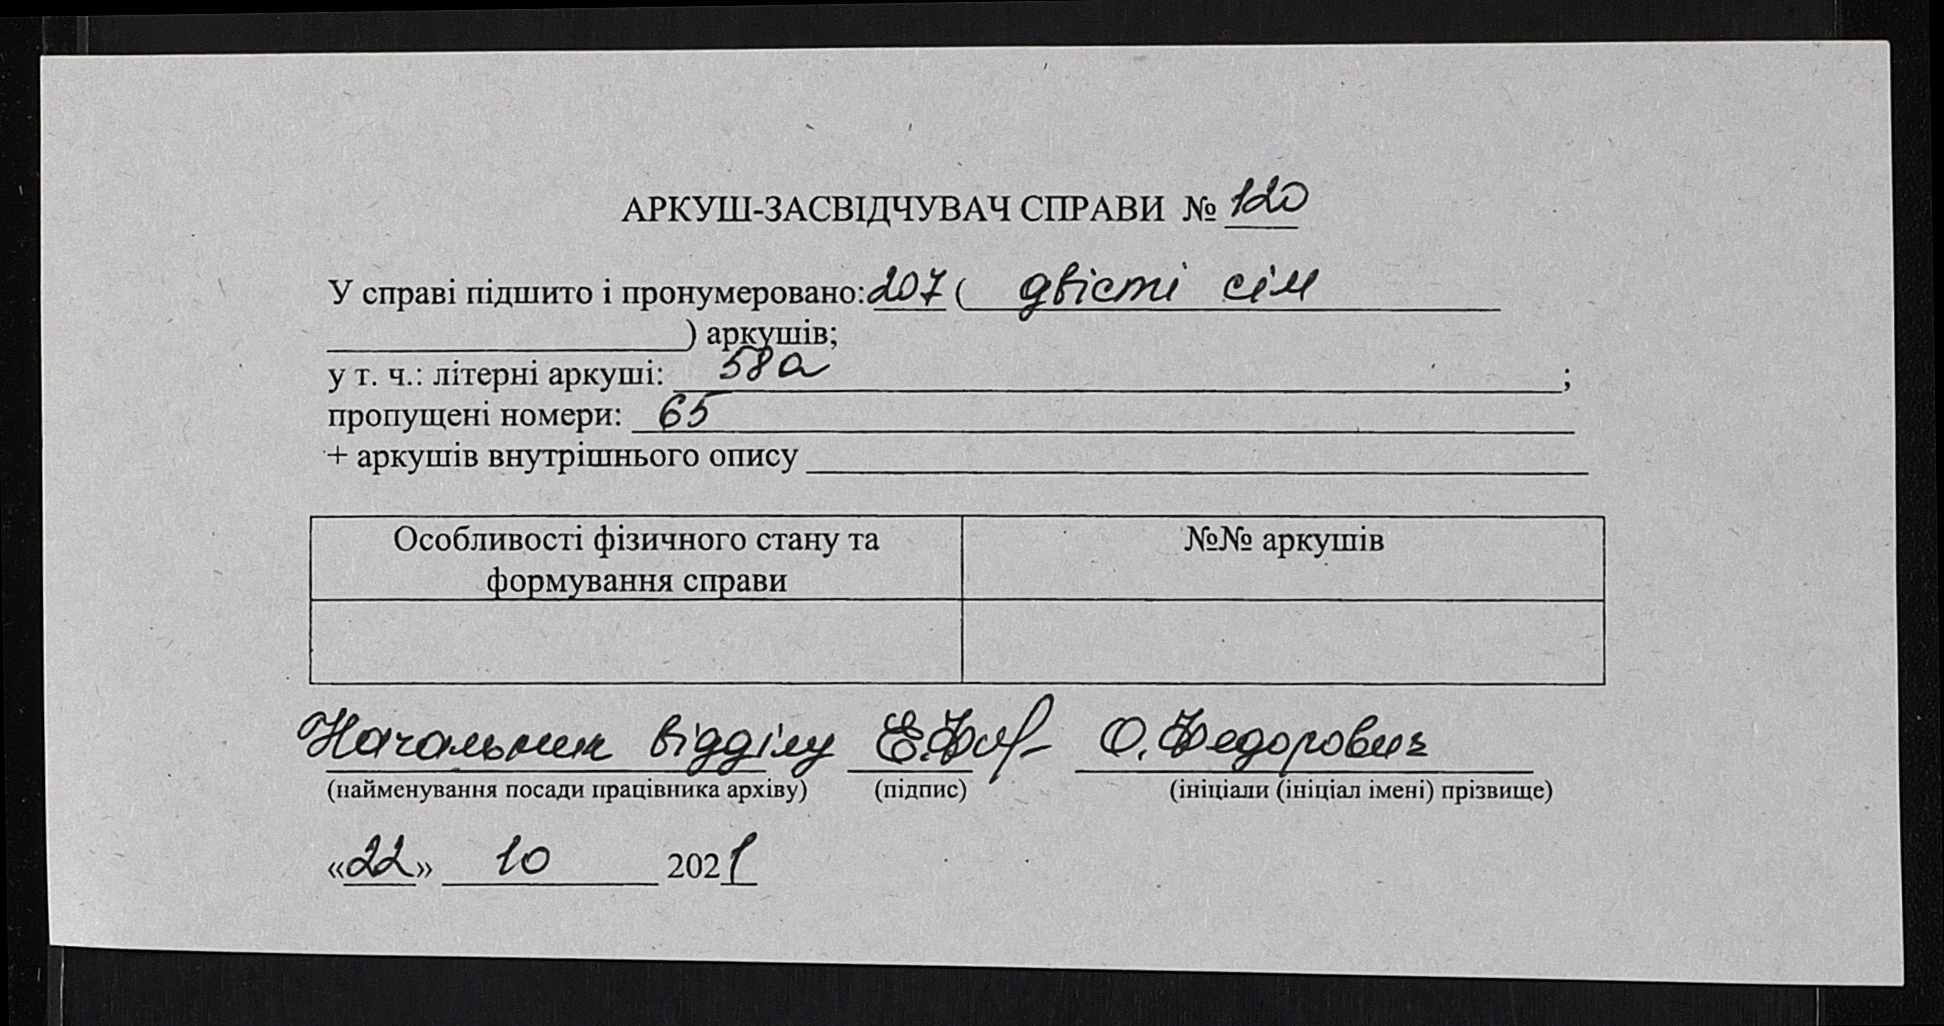 АРКУШ-ЗАСВІДЧУВАЧ СПРАВИ № 120
У справі підшито і пронумеровано: 207 ( двісті сім
) аркушів;
у т. ч.: літерні аркуші: 58а ;
пропущені номери: 65
+ аркушів внутрішнього опису
Особливості фізичного стану та
формування справи
№№ аркушів
Начальник відділу О. Федорович
(найменування посади працівника архіву) (підпис) (ініціали (ініціал імені) прізвище)
«22» 10 2021